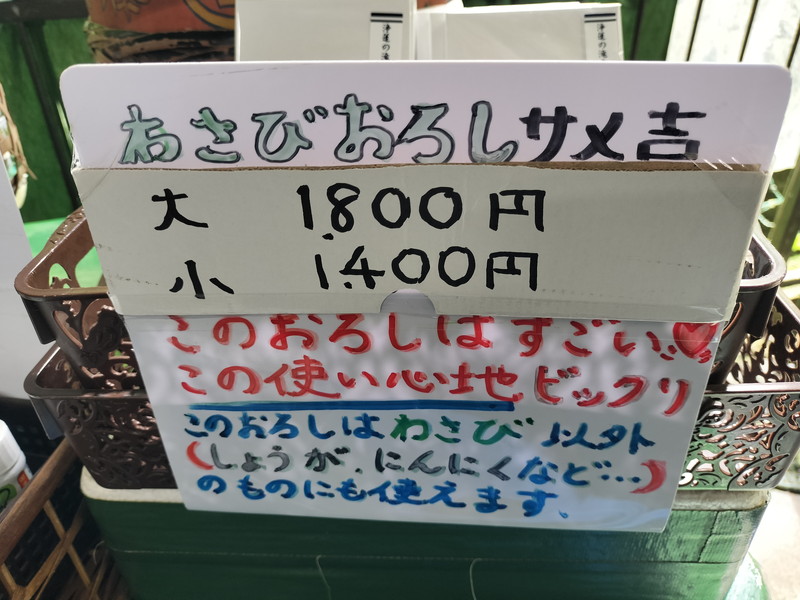 浄蓮の滝
浄蓮の
わさびおろしサメ吉
大 1.800円
小 1.400円
このおろしはすごい
この使い心地ビックリ
このおろしはわさび以外
(しょうが、にんにくなど…)
のものにも使えます。